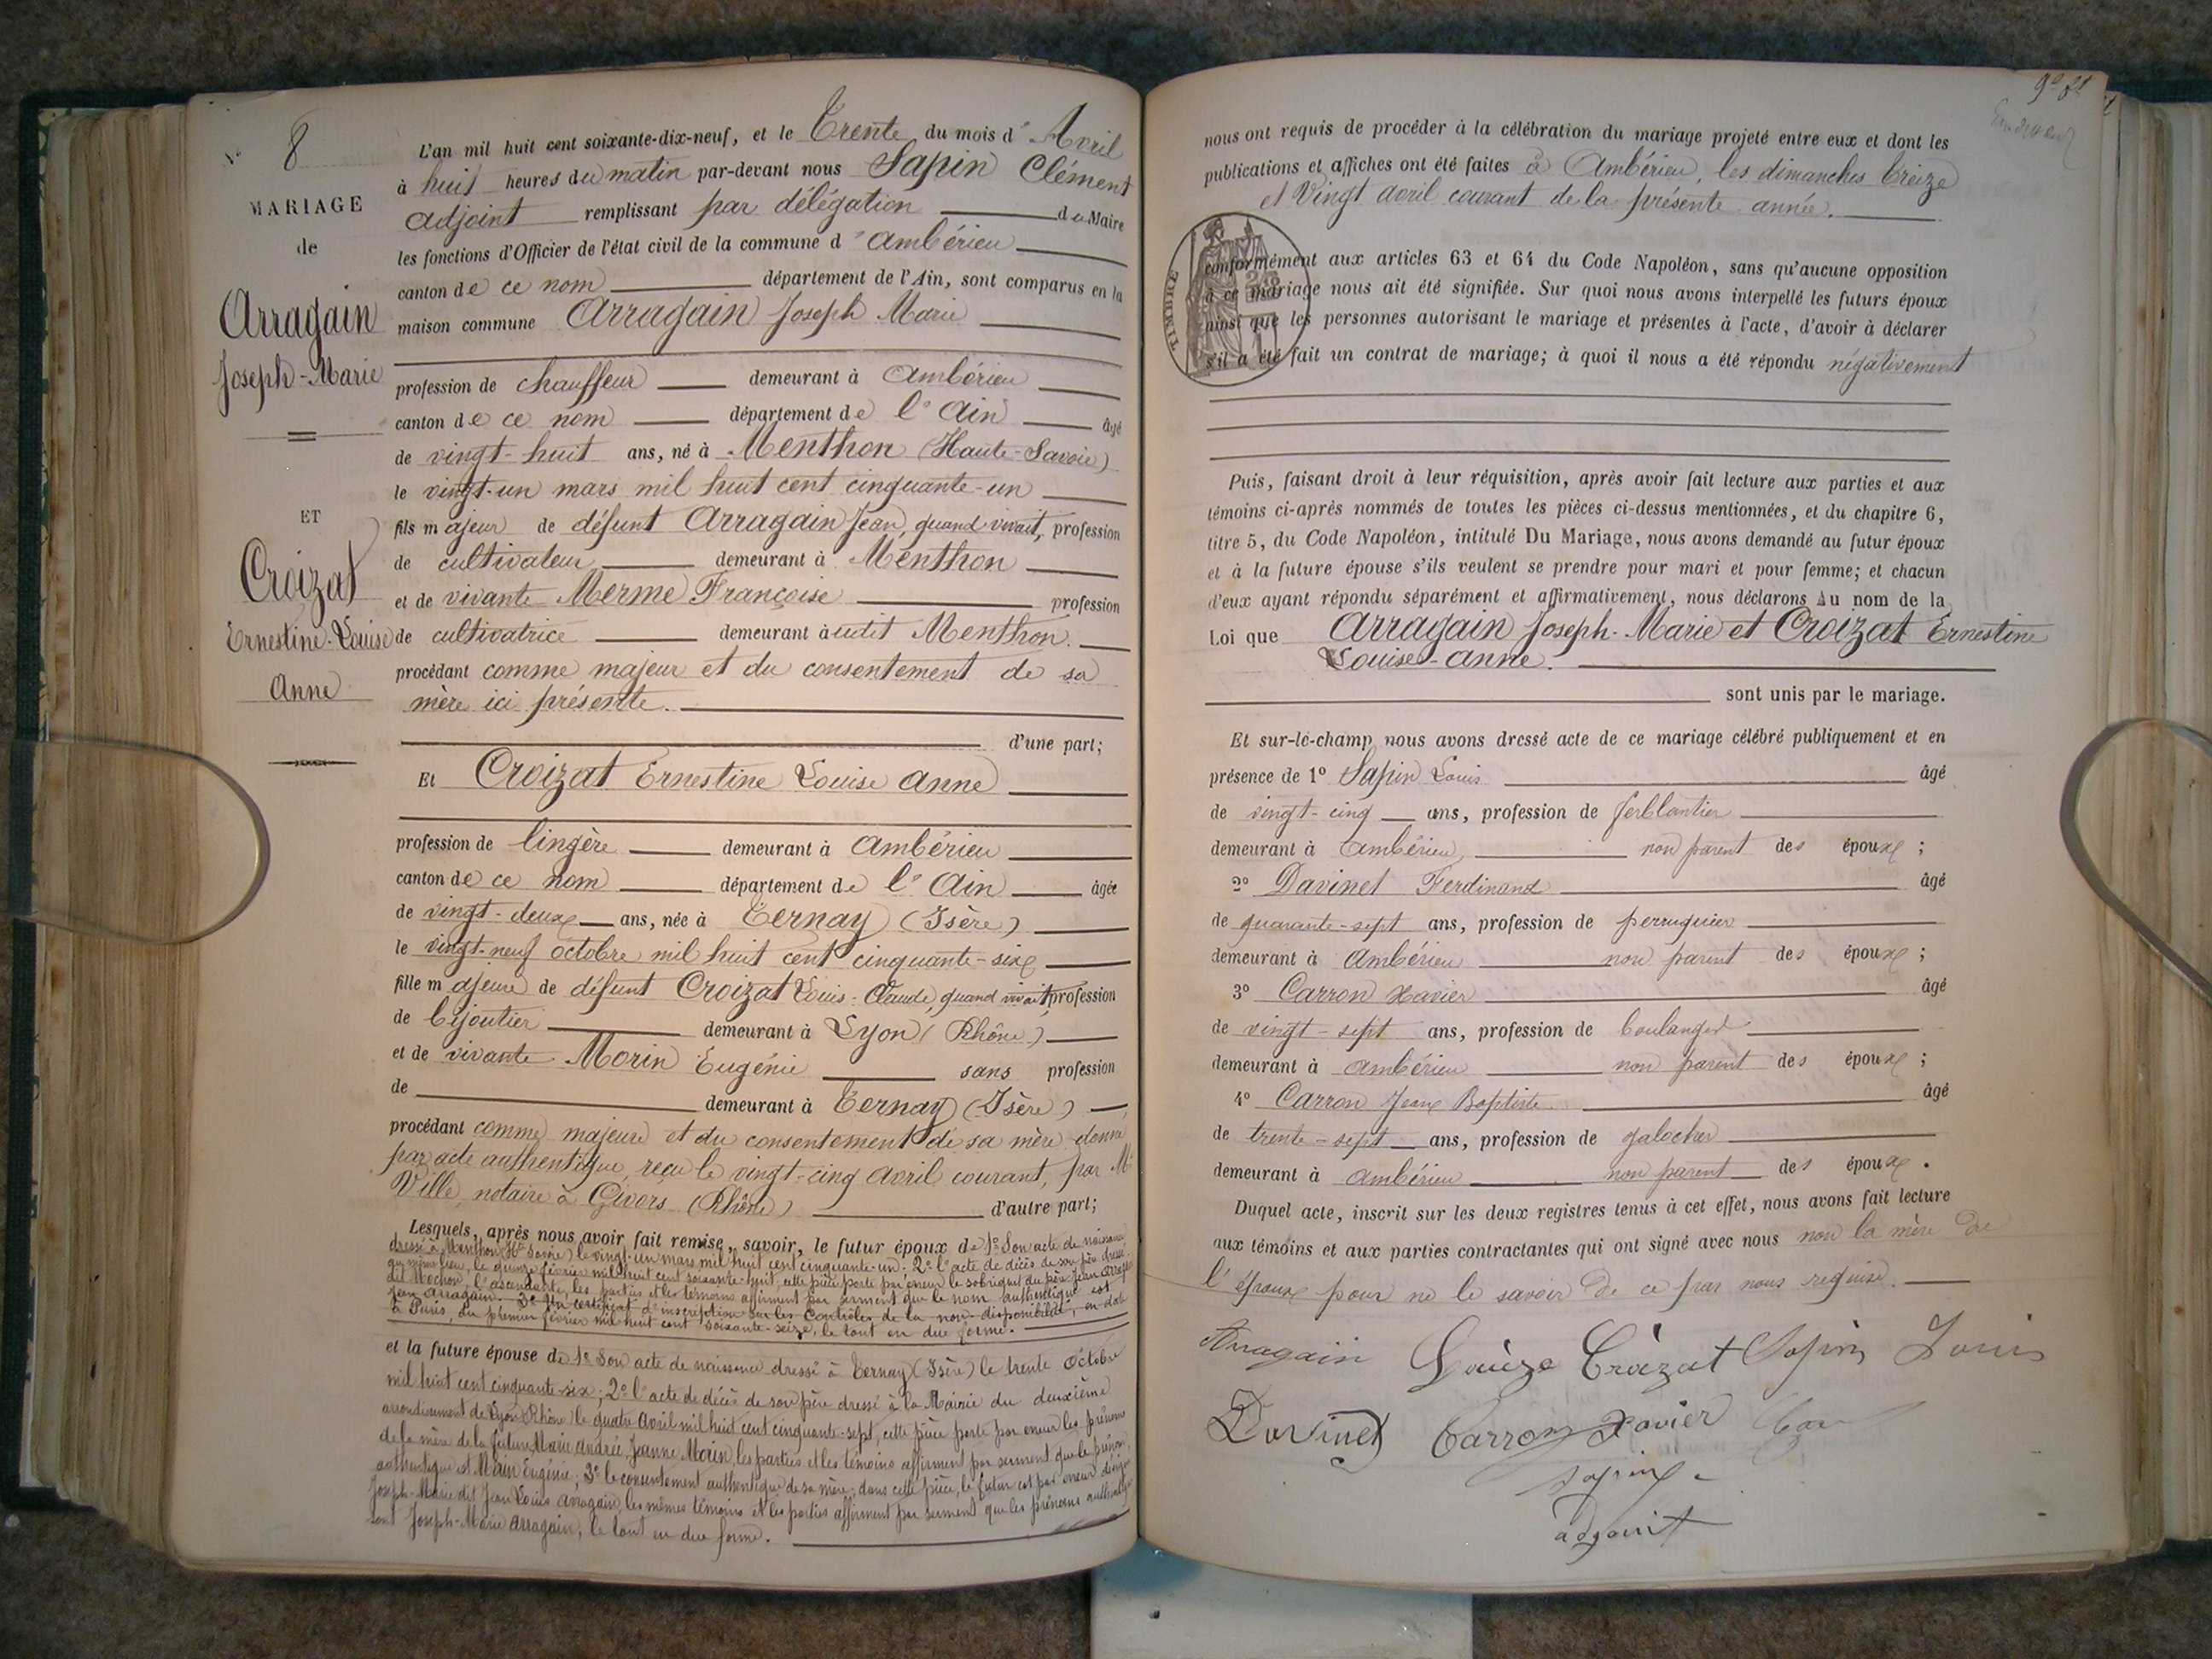 N° 8
MARIAGE
de
Arragain
Joseph-Marie
ET
Croizat
Ernestine-Louise
Anne
L'an mil huit cent soixante-dix-neuf, et le Trente du mois d' Avril
à huit heures du matin par-devant nous Sapin Clément
adjoint remplissant par délégation du Maire
les fonctions d'Officier de l'état civil de la commune d' Ambérieu
canton de ce nom département de l'Ain, sont comparus en la
maison commune Arragain Joseph Marie
profession de chauffeur demeurant à Ambérieu
canton de ce nom département de l'Ain âgé
de vingt-huit ans, né à Menthon (Haute-Savoie)
le vingt-un mars mil huit cent cinquante-un
fils majeur de défunt Arragain Jean, quand vivait, profession
de cultivateur demeurant à Menthon
et de vivante Merme Françoise profession
de cultivatrice demeurant à udit Menthon.
procédant comme majeur et du consentement de sa
mère ici présente.
d'une part;
Et Croizat Ernestine Louise Anne
profession de lingère demeurant à Ambérieu
canton de ce nom département de l'Ain âgée
de vingt-deux ans, née à Ternay (Isère)
le vingt-neuf octobre mil huit cent cinquante-six
fille majeure de défunt Croizat Louis-Claude, quand vivait, profession
de bijoutier demeurant à Lyon (Rhône)
et de vivante Morin Eugénie sans profession
de demeurant à Ternay (Isère)
procédant comme majeure et du consentement de sa mère donné
par acte authentique reçu le vingt-cinq avril courant, par Me
Ville, notaire à Givors (Rhône) d'autre part;
Lesquels, après nous avoir fait remise, savoir, le futur époux de 1° Son acte de naissance
dressé à Menthon (Hte Savoie) le vingt-un mars mil huit cent cinquante-un; 2° l'acte de décès de son père dressé
au même lieu, le quinze février mil huit cent soixante-huit, cette pièce porte par erreur le sobriquet du père Jean Arragain
dit Mochon, l'ascendante, les parties et les témoins affirment par serment que le nom authentique est
Jean Arragain. 3° Un certificat d'inscription sur les Contrôles de la non-disponibilité, en date
à Paris, du premier février mil huit cent soixante-seize, le tout en due forme.
et la future épouse de 1° Son acte de naissance dressé à Ternay (Isère) le trente Octobre
mil huit cent cinquante-six; 2° l'acte de décès de son père dressé à la Mairie du deuxième
arrondissement de Lyon (Rhône) le quatre avril mil huit cent cinquante-sept, cette pièce porte par erreur les prénoms
de la mère de la future Marie Andrée Jeanne Morin, les parties et les témoins affirment par serment que le prénom
authentique est Morin Eugénie; 3° le consentement authentique de sa mère; dans cette pièce, le futur est par erreur désigné
Joseph-Marie dit Jean Louis Arragain, les mêmes témoins et les parties affirment par serment que les prénoms authentiques
sont Joseph-Marie Arragain, le tout en due forme.
nous ont requis de procéder à la célébration du mariage projeté entre eux et dont les
publications et affiches ont été faites à Ambérieu, les dimanches treize
et Vingt avril courant de la présente année.
TIMBRE
conformément aux articles 63 et 64 du Code Napoléon, sans qu'aucune opposition
à ce mariage nous ait été signifiée. Sur quoi nous avons interpellé les futurs époux
ainsi que les personnes autorisant le mariage et présentes à l'acte, d'avoir à déclarer
s'il a été fait un contrat de mariage; à quoi il nous a été répondu négativement
Puis, faisant droit à leur réquisition, après avoir fait lecture aux parties et aux
témoins ci-après nommés de toutes les pièces ci-dessus mentionnées, et du chapitre 6,
titre 5, du Code Napoléon, intitulé Du Mariage, nous avons demandé au futur époux
et à la future épouse s'ils veulent se prendre pour mari et pour femme; et chacun
d'eux ayant répondu séparément et affirmativement, nous déclarons Au nom de la
Loi que Arragain Joseph-Marie et Croizat Ernestine
Louise-Anne.
sont unis par le mariage.
Et sur-le-champ nous avons dressé acte de ce mariage célébré publiquement et en
présence de 1° Sapin Louis âgé
de vingt-cinq ans, profession de ferblantier
demeurant à Ambérieu, non parent des époux ;
2° Davinet Ferdinand âgé
de quarante-sept ans, profession de perruquier
demeurant à Ambérieu non parent des époux ;
3° Carron Xavier âgé
de vingt-sept ans, profession de boulanger
demeurant à Ambérieu non parent des époux ;
4° Carron Jean Baptiste âgé
de trente-sept ans, profession de galocher
demeurant à Ambérieu non parent des époux.
Duquel acte, inscrit sur les deux registres tenus à cet effet, nous avons fait lecture
aux témoins et aux parties contractantes qui ont signé avec nous non la mère de
l'époux pour ne le savoir de ce par nous requise.
Arragain Louize Croizat Sapin Louis
Davinet Carron Xavier Car
Sapin
adjoint